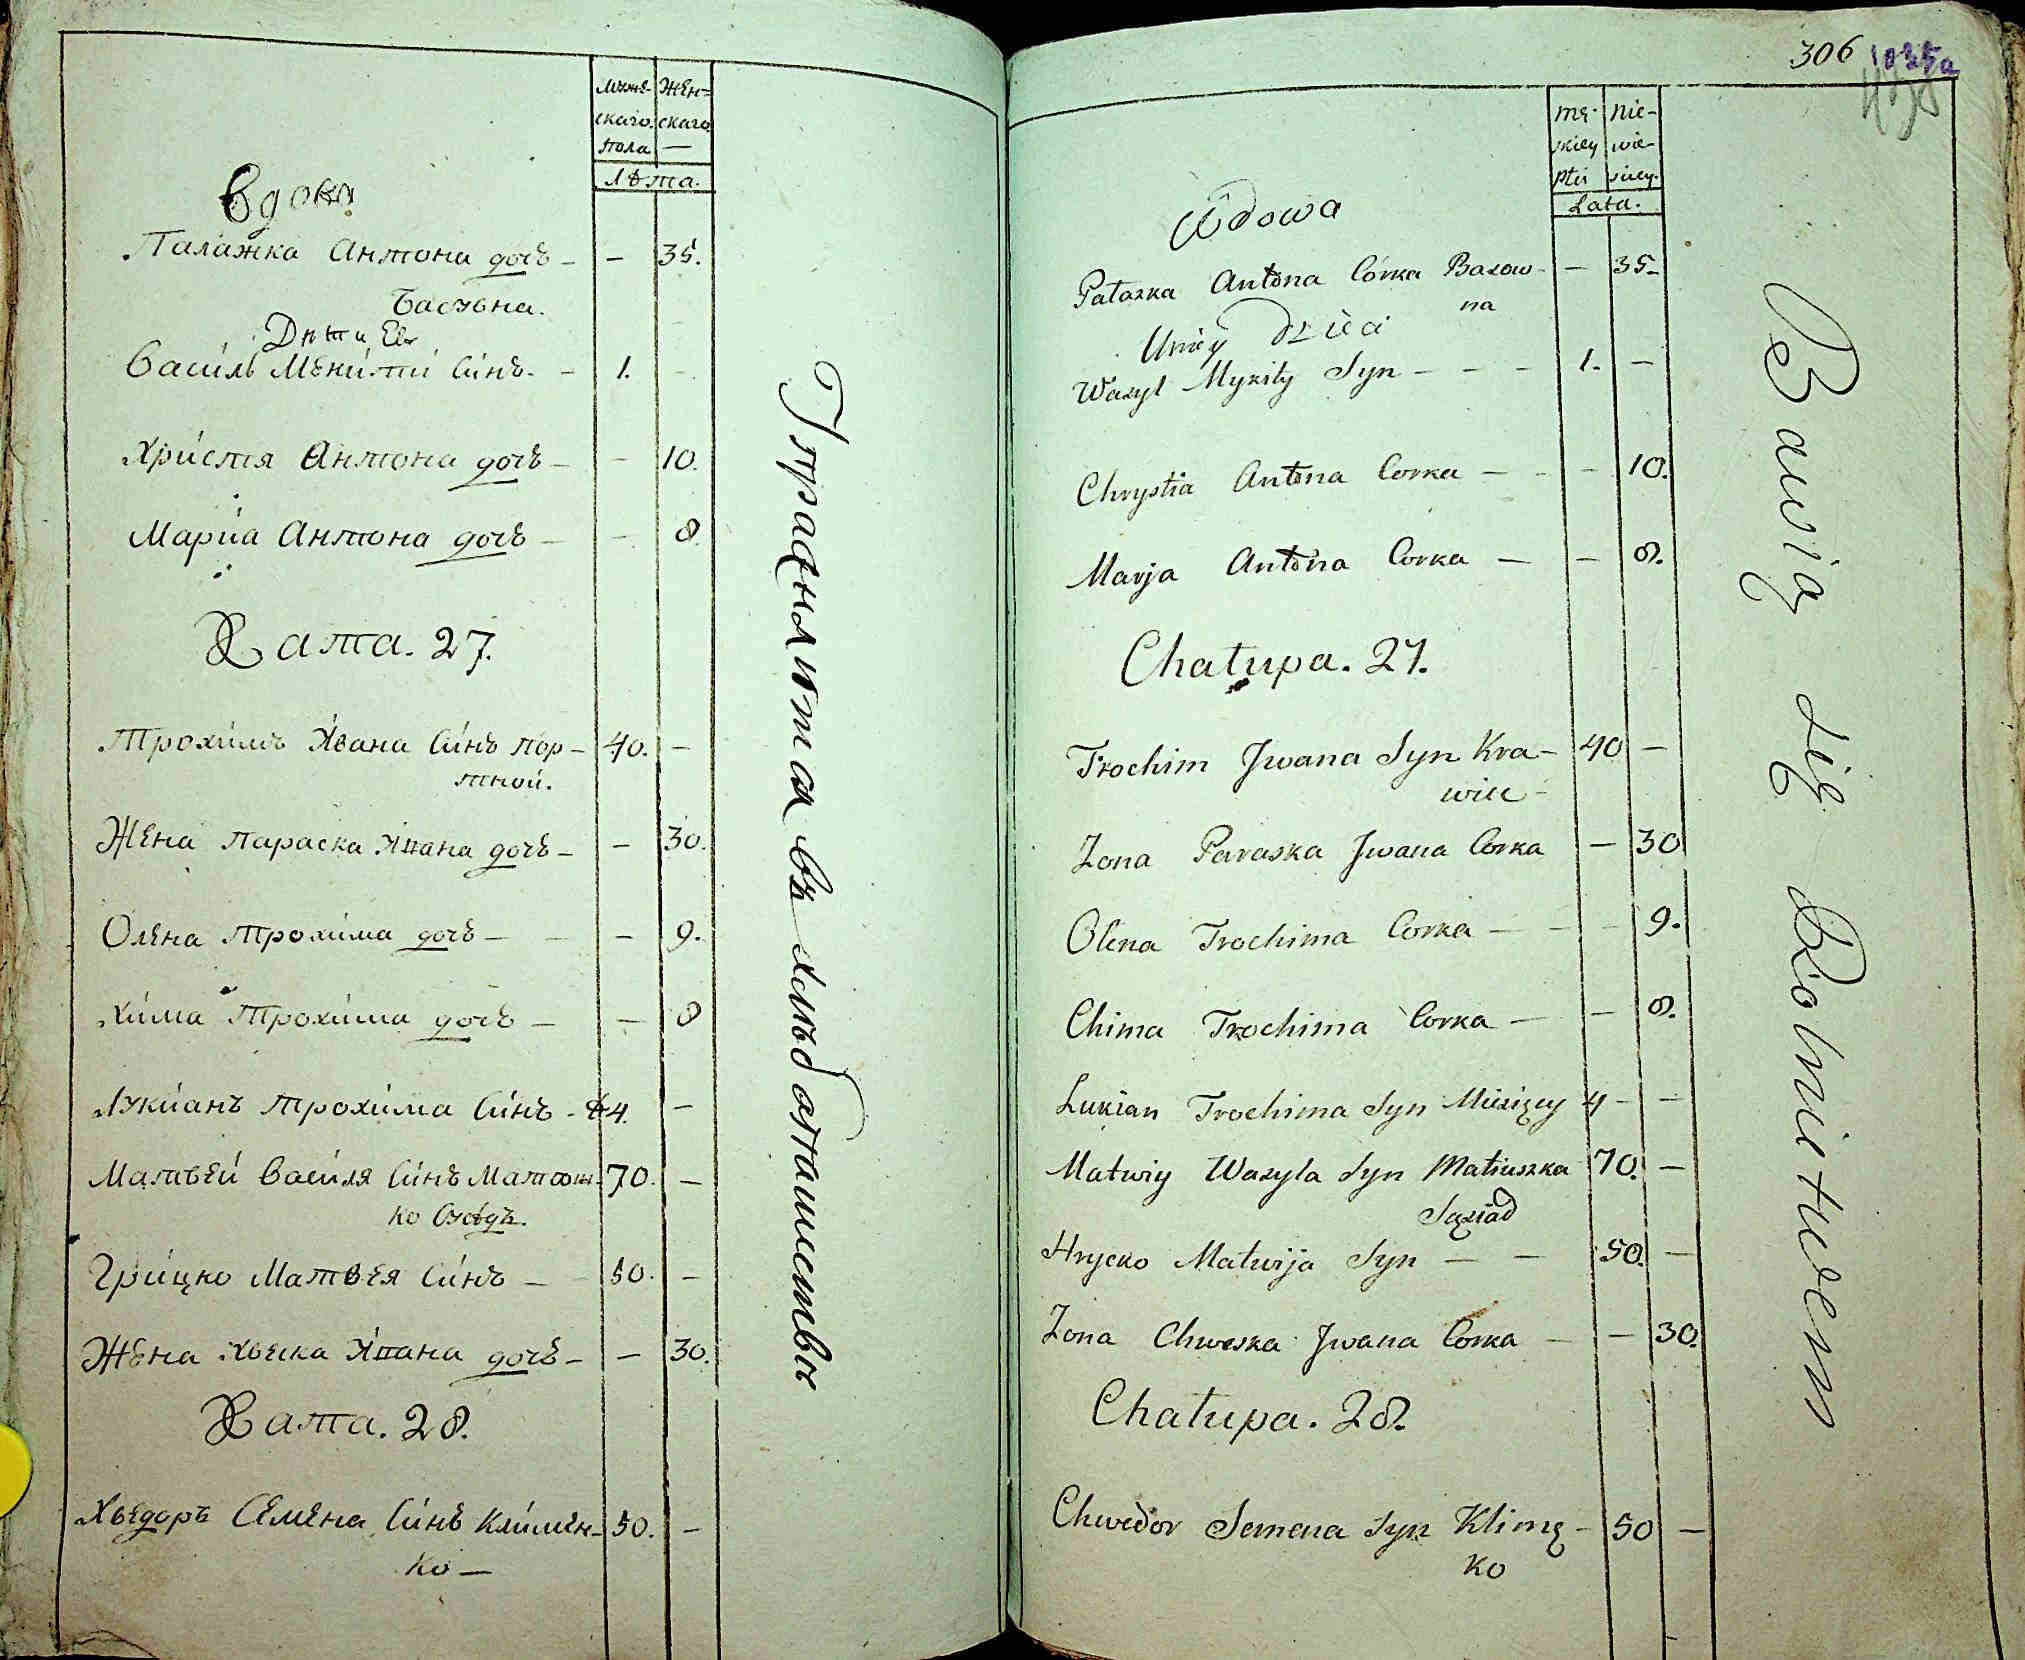 Муже- Жен=
скаго скаго
пола —
Лѣта.
Вдова
Палажка Антона дочь - - 35.
Басчьна.
Дѣти Ев
Василь Мекити Синъ. - 1. -
Христя Антона дочь - - 10.
Мариа Антона дочь - - 8.
Хата. 27.
Трохимъ Ивана Синъ пор- 40. -
тной.
Жена Параска Ивана дочь - - 30.
Олена Трохима дочь - - 9.
Хима Трохима дочь - - 8
Лукианъ Трохима Синъ - 4. -
Матвей Василя Синъ Матюш- 70. -
ко Сусѣдъ.
Грицко Матвея Синъ - 50. -
Жена Хвеска Ивана дочь - - 30.
Хата. 28.
Хведоръ Семена Синъ Клімен- 50. -
ко —
Упражняются въ хлѣбопашествѣ
306 1035а
mę- nie-
skiey wie-
płci sciey.
Lata.
Wdowa
Pałaszka Antona Córka Basow- - 35-
na
Uniey Dzieci
Wasyl Mykity Syn - - - 1. -
Chrystia Antona Corka - - - 10.
Marja Antona Corka - - 8.
Chałupa. 27.
Trochim Jwana Syn Kra- 40 -
wiec -
Zona Paraska Jwana Corka - 30
Olena Trochima Corka - - - 9.
Chima Trochima Corka - - 8.
Lukian Trochima Syn 4 - -
Matwiy Wasyla Syn Matiuszka 70. -
Sąsiad
Hrycko Matwija Syn - - 50. -
Zona Chweska Jwana Corka - - 30.
Chałupa. 28.
Chwedor Semena Syn Klimę- 50 -
ko
Bawią się Rolnictwem